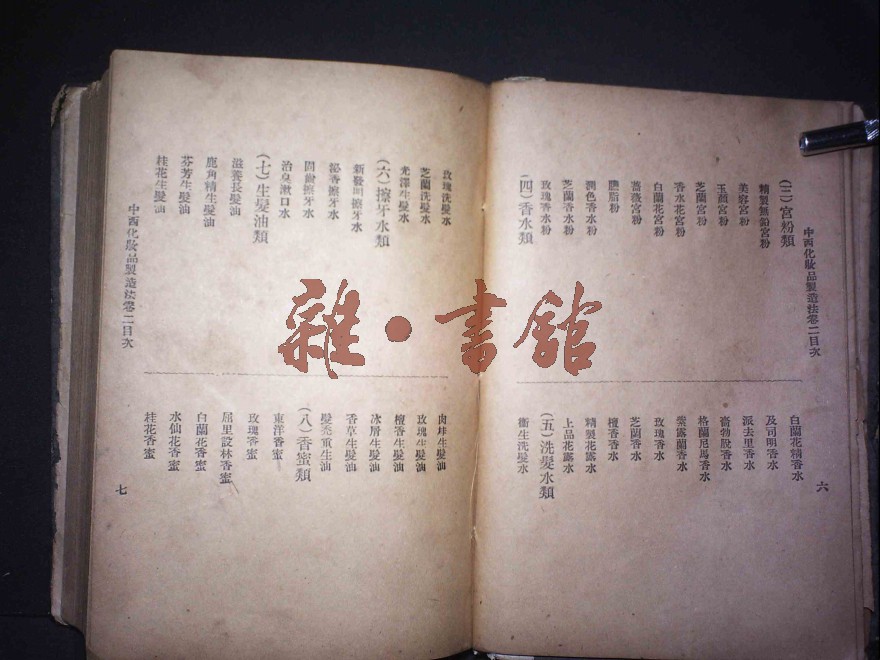 中西化妝品製造法卷二目次
(三)宮粉類
精製無鉛宮粉
美容宮粉
玉顏宮粉
芝蘭宮粉
香水花宮粉
白蘭花宮粉
薔薇宮粉
臙脂粉
潤色香水粉
芝蘭香水粉
玫瑰香水粉
(四)香水類
白蘭花精香水
及司明香水
派去里香水
喬勃脫香水
格蘭尼馬香水
紫露蘭香水
玫瑰香水
芝蘭香水
檀香香水
精製花露水
上品花露水
(五)洗髮水類
衞生洗髮水
六
玫瑰洗髮水
芝蘭洗髮水
光澤生髮水
(六)擦牙水類
新發明擦牙水
祕香擦牙水
固齒擦牙水
治臭漱口水
(七)生髮油類
滋養長髮油
鹿角精生髮油
芬芳生髮油
桂花生髮油
中西化妝品製造法卷二目次
肉桂生髮油
玫瑰生髮油
檀香生髮油
冰屑生髮油
香草生髮油
髮禿重生油
(八)香蜜類
東洋香蜜
玫瑰香蜜
屈里設林香蜜
白蘭花香蜜
水仙花香蜜
桂花香蜜
七
雜·書館